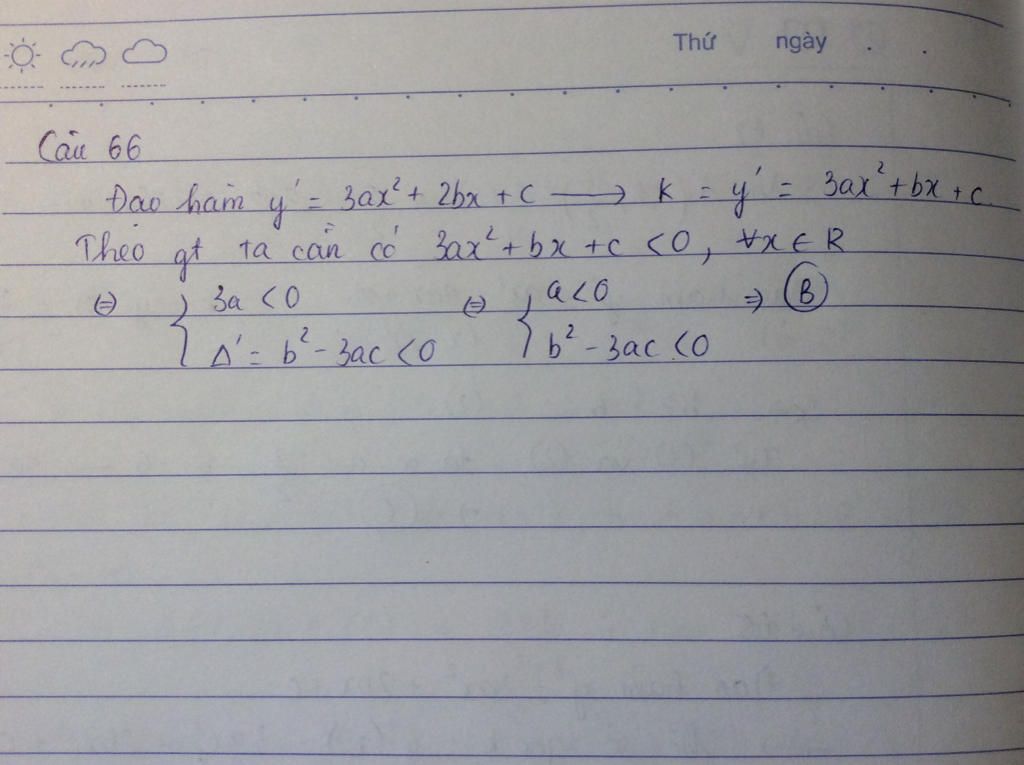 Thứ ngày . .
Câu 66
Đạo hàm y' = 3ax² + 2bx + c ⟶ K = y' = 3ax² + bx + c
Theo gt ta cần có 3ax² + bx + c < 0, ∀x ∈ R
⇔ { 3a < 0 ⇔ { a < 0 ⇒ B
Δ' = b² - 3ac < 0 b² - 3ac < 0